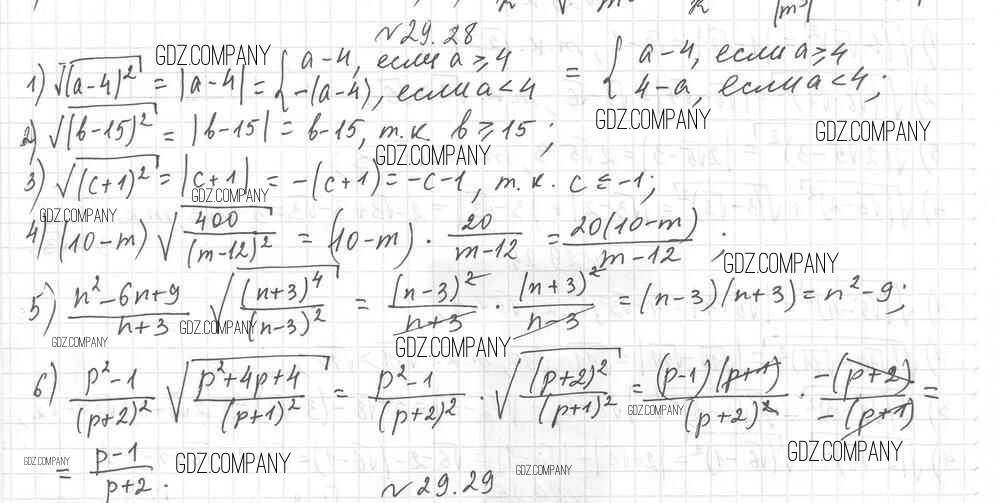 №29.28
1) √(a-4)² = |a-4| = { a-4, если a ≥ 4 ; -(a-4), если a < 4 = { a-4, если a ≥ 4 ; 4-a, если a < 4;
GDZ.COMPANY
GDZ.COMPANY
GDZ.COMPANY
2) √(b-15)² = |b-15| = b-15, т.к. b ≥ 15;
GDZ.COMPANY
3) √(c+1)² = |c+1| = -(c+1) = -c-1, т.к. c ≤ -1;
GDZ.COMPANY
GDZ.COMPANY
4) (10-m) √(400/(m-12)²) = (10-m) · 20/(m-12) = 20(10-m)/(m-12);
GDZ.COMPANY
5) (n²-6n+9)/(n+3) √((n+3)⁴/(n-3)²) = (n-3)²/(n+3) · (n+3)²/(n-3) = (n-3)(n+3) = n²-9;
GDZ.COMPANY
GDZ.COMPANY
GDZ.COMPANY
6) (p²-1)/(p+2)² √((p²+4p+4)/(p+1)²) = (p²-1)/(p+2)² · √((p+2)²/(p+1)²) = (p-1)(p+1)/(p+2)² · -(p+2)/-(p+1) =
GDZ.COMPANY
GDZ.COMPANY
= (p-1)/(p+2).
GDZ.COMPANY
GDZ.COMPANY
GDZ.COMPANY
№29.29